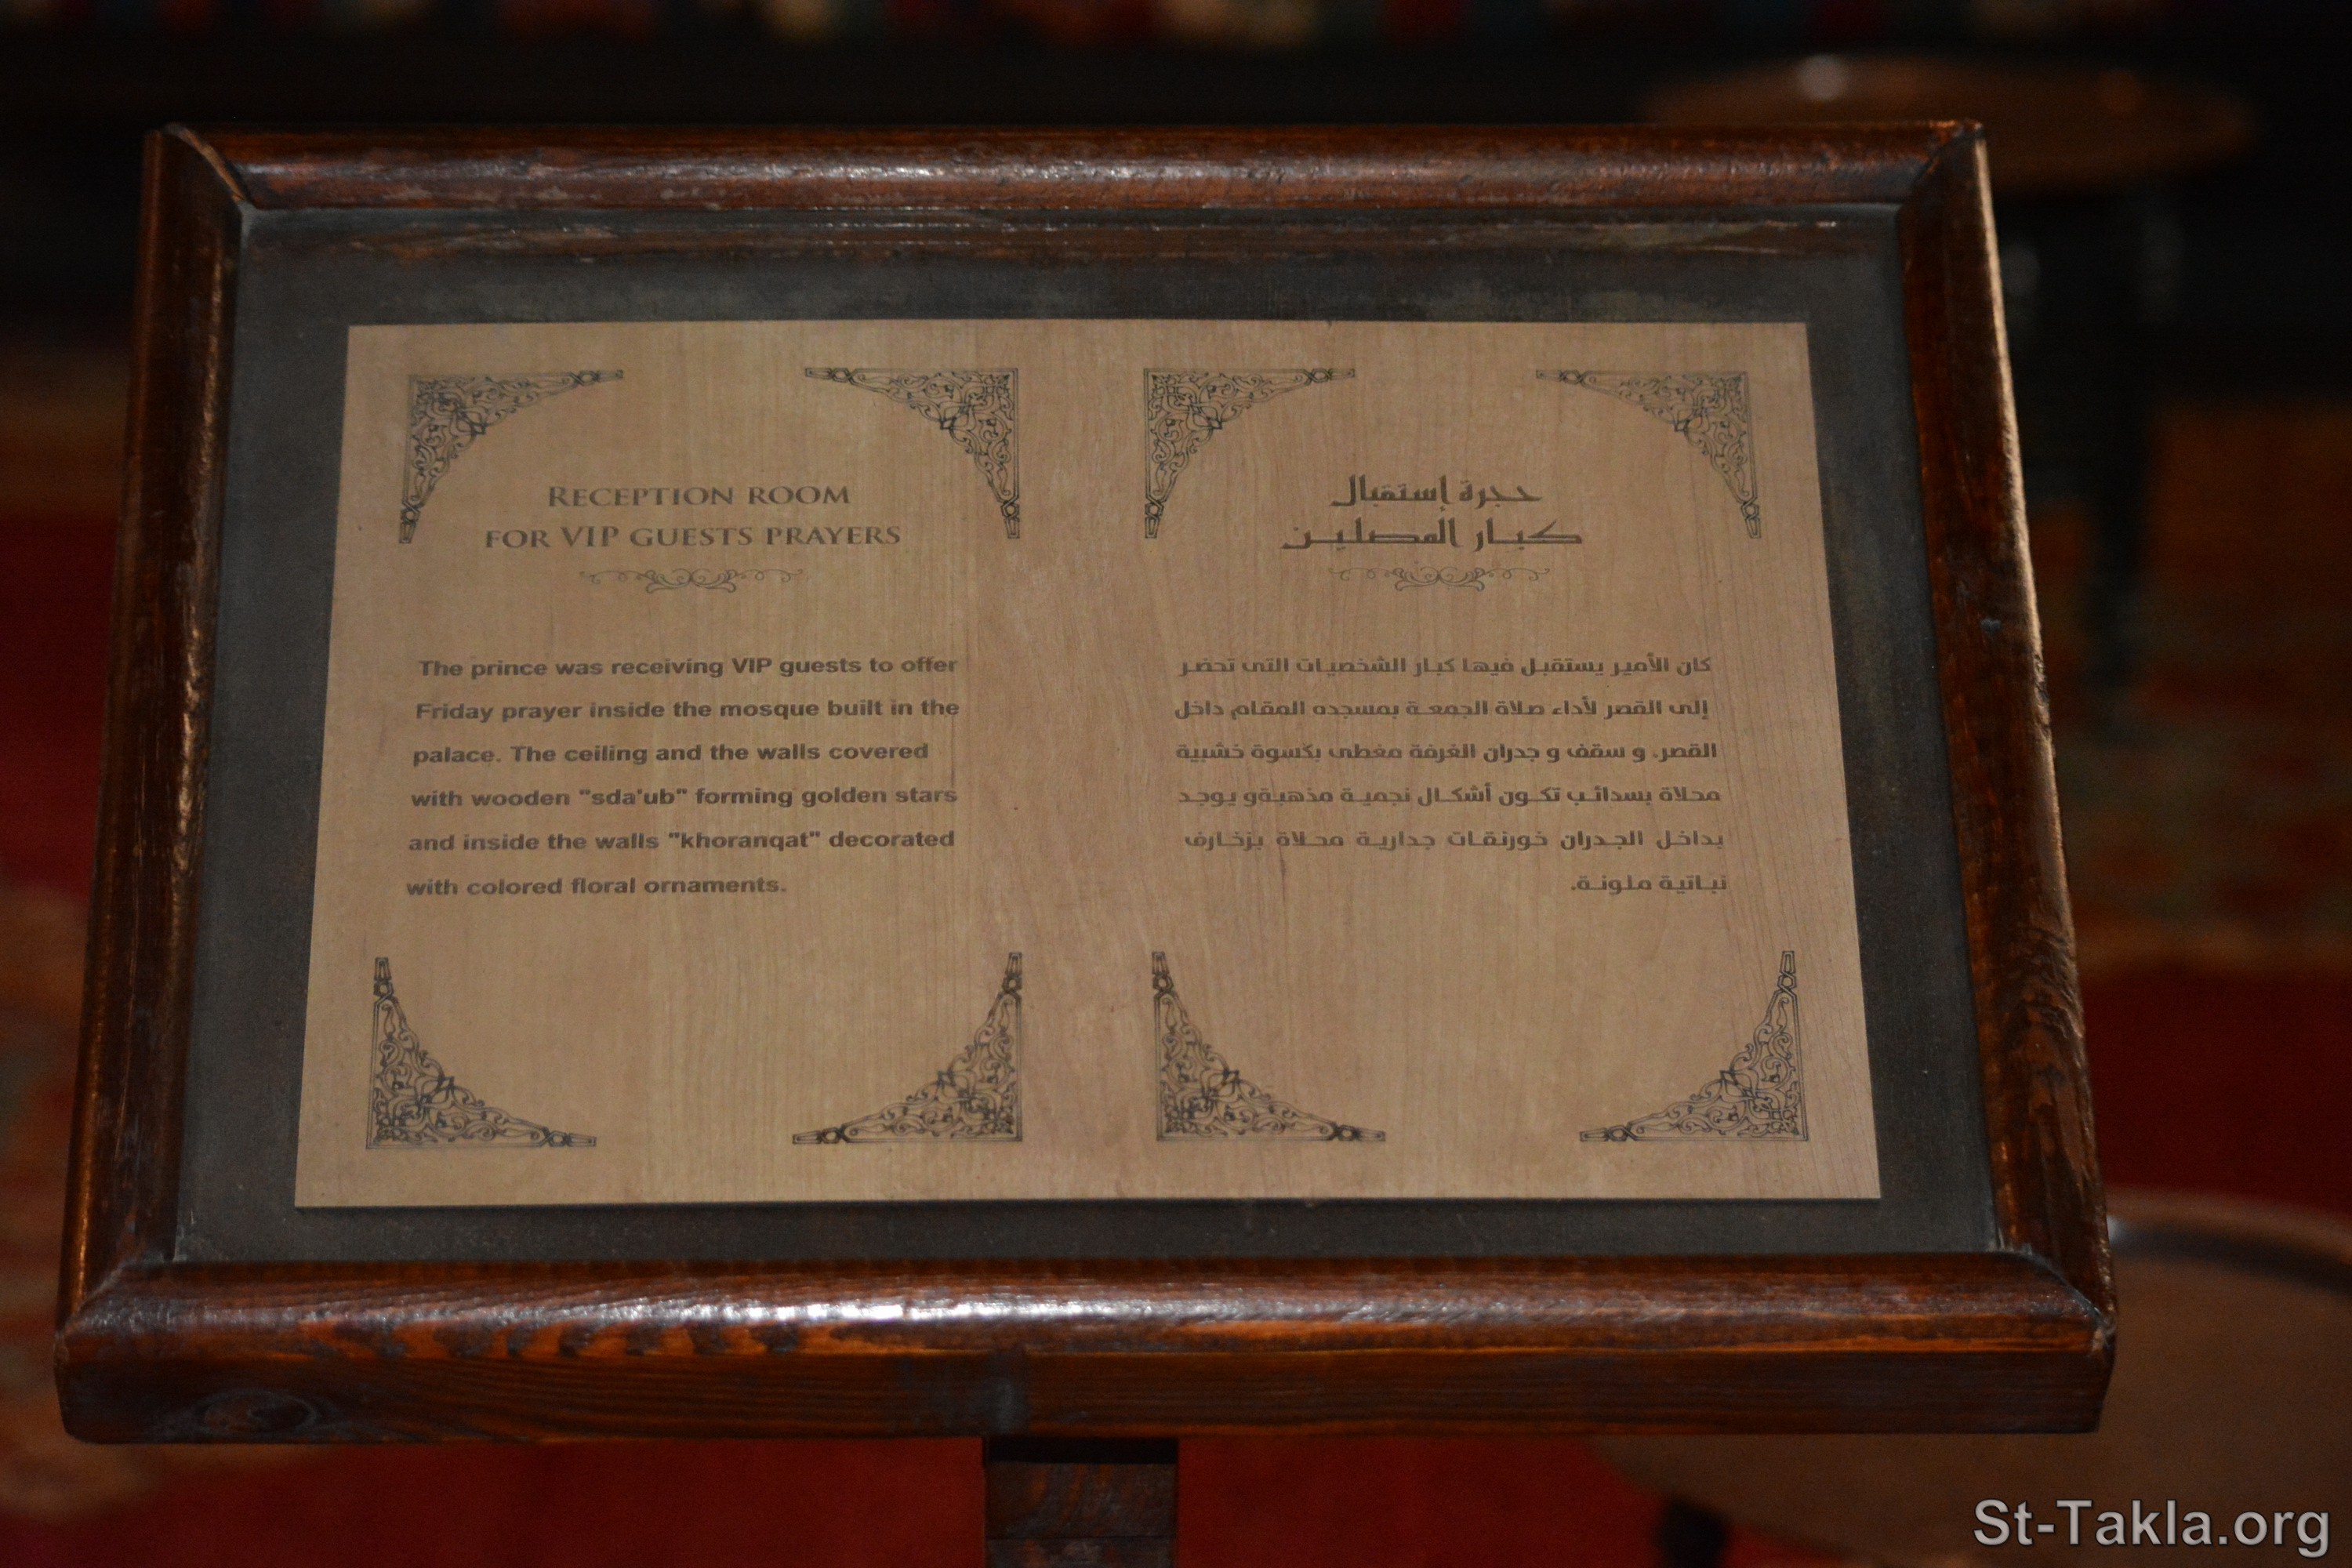 RECEPTION ROOM
FOR VIP GUESTS PRAYERS
The prince was receiving VIP guests to offer
Friday prayer inside the mosque built in the
palace. The ceiling and the walls covered
with wooden "sda'ub" forming golden stars
and inside the walls "khoranqat" decorated
with colored floral ornaments.
حجرة إستقبال
كبار المصلين
كان الأمير يستقبل فيها كبار الشخصيات التى تحضر
إلى القصر لأداء صلاة الجمعة بمسجده المقام داخل
القصر. و سقف و جدران الغرفة مغطى بكسوة خشبية
محلاة بسدائب تكون أشكال نجمية مذهبةو يوجد
بداخل الجدران خورنقات جدارية محلاة بزخارف
نباتية ملونة.
St-Takla.org